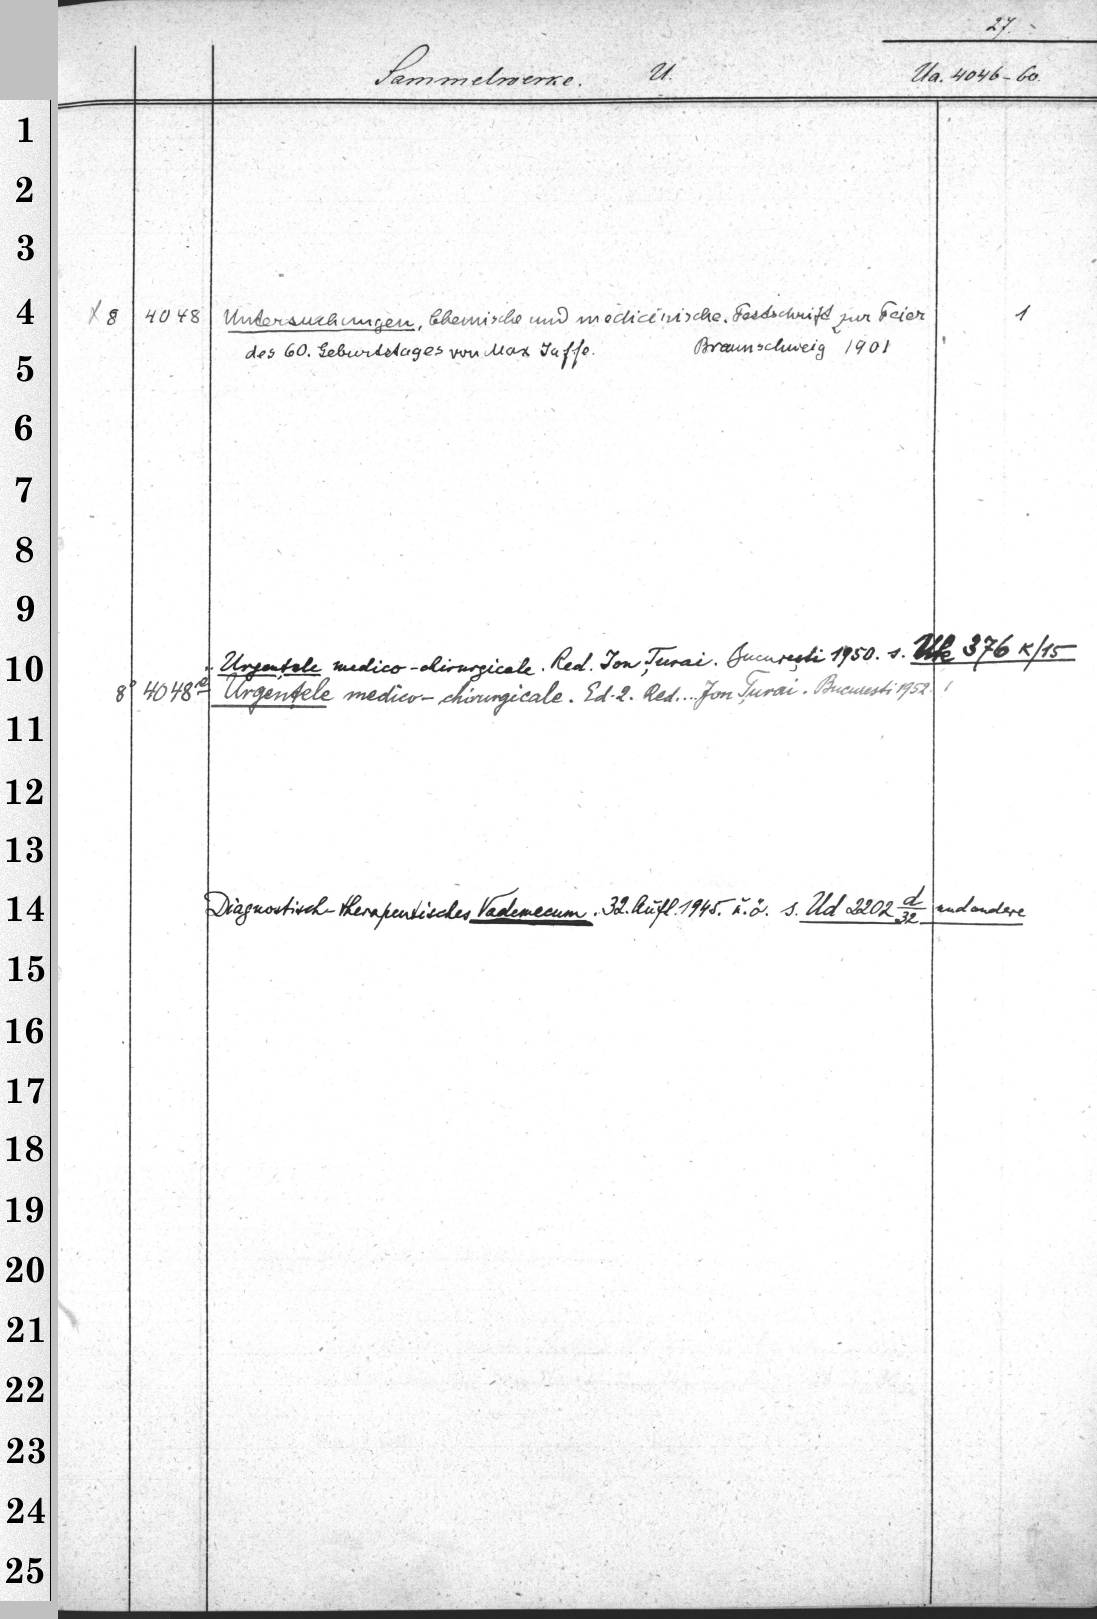 27.
Sammelwerke. U. Ua. 4046-60.
1
2
3
4 x 8 4048 Untersuchungen, Chemische und medicinische. Festschrift zur Feier 1
des 60. Geburtstages von Max Jaffe. Braunschweig 1901
5
6
7
8
9
10 Urgențele medico-chirurgicale. Red. Jon Țurai. București 1950. s. Uk 376 K/15
8° 4048 Urgențele medico-chirurgicale. Ed. 2. Red... Jon Țurai. Bucuresti 1952. 1
11
12
13
14 Diagnostisch-therapeutisches Vademecum. 32. Aufl. 1945. u. ö. s. Ud 2202 d/32 und andere
15
16
17
18
19
20
21
22
23
24
25